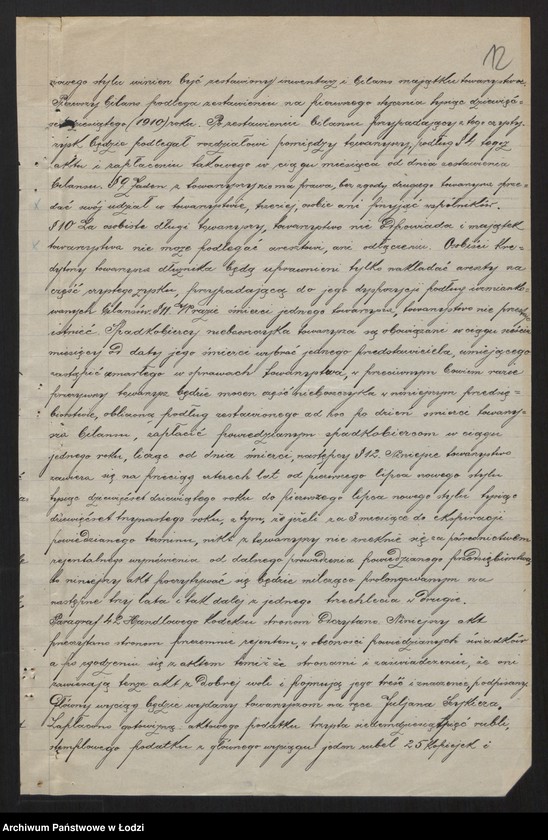 12
nowego stylu winien być zestawiony inwentarz i bilans majątku towarzystwa.
Pierwszy bilans podlega zestawieniu na pierwszego stycznia tysiąc dziewięć=
set dziesiątego (1910) roku. Po zestawieniu bilansu przypadający z tego czysty
zysk będzie podlegał rozdziałowi pomiędzy towarzyszy, podług § 4 tego
aktu i zapłaceniu takowego w ciągu miesiąca od dnia zestawienia
bilansu. § 9 Żaden z towarzyszy nie ma prawa, bez zgody drugiego towarzysza sprze=
dać swój udział w towarzystwie, trzeciej osobie ani przyjąć wspólników.
§ 10 Za osobiste długi towarzyszy, towarzystwo nie odpowiada i majątek
towarzystwa nie może podlegać aresztowi, ani odłączeniu. Osobiści kre=
dytorzy towarzysza dłużnika będą uprawnieni tylko nakładać areszty na
część czystego zysku, przypadającą do jego dyspozycji podług wzmianko=
wanych bilansów. § 11 W razie śmierci jednego towarzysza, towarzystwo nie przestaje
istnieć. Spadkobiercy nieboszczyka towarzysza są obowiązani w ciągu sześciu
miesięcy od daty jego śmierci wybrać jednego przedstawiciela, umiejącego
zastąpić zmarłego w sprawach towarzystwa, w przeciwnym bowiem razie
pozostały towarzysz będzie mocen część nieboszczyka w niniejszym przedsię=
biorstwie, obliczoną podług zestawionego ad hoc po dzień śmierci towarzy=
sza bilansu, zapłacić powiedzianym spadkobiercom w ciągu
jednego roku, licząc od dnia śmierci, następczy § 12. Niniejsze towarzystwo
zawiera się na przeciąg czterech lat od pierwszego lipca nowego stylu
tysiąc dziewięćset dziewiątego roku do pierwszego lipca nowego stylu tysiąc
dziewięćset trzynastego roku, z tym, że jeżeli za 3 miesiące do ekspiracji
powiedzianego terminu, nikt z towarzyszy nie zrzeknie się za pośrednictwem
rejentalnego wymówienia od dalszego prowadzenia powiedzianego przedsiębiorstwa,
to niniejszy akt poczytywać się będzie milcząco prolongowanym na
następne trzy lata i tak dalej z jednego trzechlecia w drugie.
Paragraf 42 Handlowego Kodeksu stronom odczytano. Niniejszy akt
przeczytano stronom przezemnie rejenta, w obecności powiedzianych świadków
a po zgodzeniu się z aktem temiż że stronami z zaświadczeniem, że oni
zawierają tenże akt z dobrej woli i pojmują jego treść i znaczenie, podpisany.
Główny wyciąg będzie wydany towarzyszom na ręce Juljana Szykiera.
Zapłacono gotowizną: aktowego podatku trzysta siedemdziesiąt pięć rubli,
stemplowego podatku z głównego wyciągu jeden rubel 25 kopiejek i
Archiwum Państwowe w Łodzi